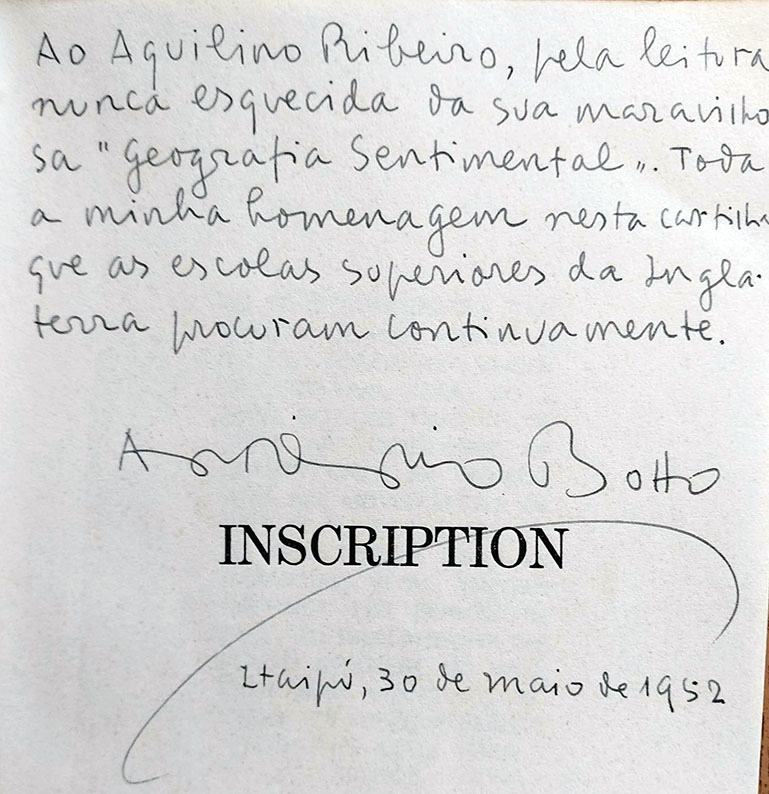 Ao Aquilino Ribeiro, pela leitura
nunca esquecida da sua maravilho
sa "Geografia Sentimental". Toda
a minha homenagem nesta cartilha
que as escolas superiores da Ingla-
terra procuram continuamente.
António Botto
INSCRIPTION
Itaipú, 30 de maio de 1952